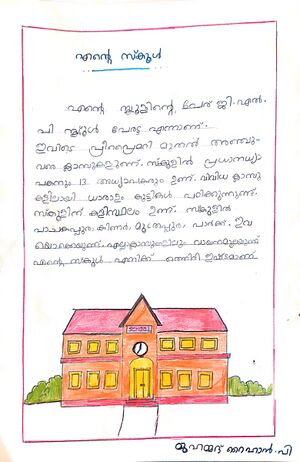 എൻ്റെ സ്കൂൾ
എൻ്റെ സ്കൂളിൻ്റെ പേര് ജി.എൽ.
പി സ്കൂൾ പേരട്ട എന്നാണ്.
ഇവിടെ പ്രീപ്രൈമറി മുതൽ അഞ്ചു
വരെ ക്ലാസുകളുണ്ട്. സ്കൂളിൽ പ്രധാനധ്യാ
പകനും 13 അധ്യാപകരും ഉണ്ട്. വിവിധ ക്ലാസു
കളിലായി ധാരാളം കുട്ടികൾ പഠിക്കുന്നുണ്ട്.
സ്കൂളിന് കളിസ്ഥലം ഉണ്ട്. സ്കൂളിൽ
പാചകപ്പുര, കിണർ, മൂത്രപ്പുര, പാർക്ക്, ഇവ
യൊക്കെയുണ്ട്. എല്ലാക്ലാസുകളിലും വായനമൂലയുണ്ട്
എൻ്റെ സ്കൂൾ എനിക്ക് ഒത്തിരി ഇഷ്ടമാണ്
SCHOOL
മുഹമ്മദ് റൈഹാൻ.പി